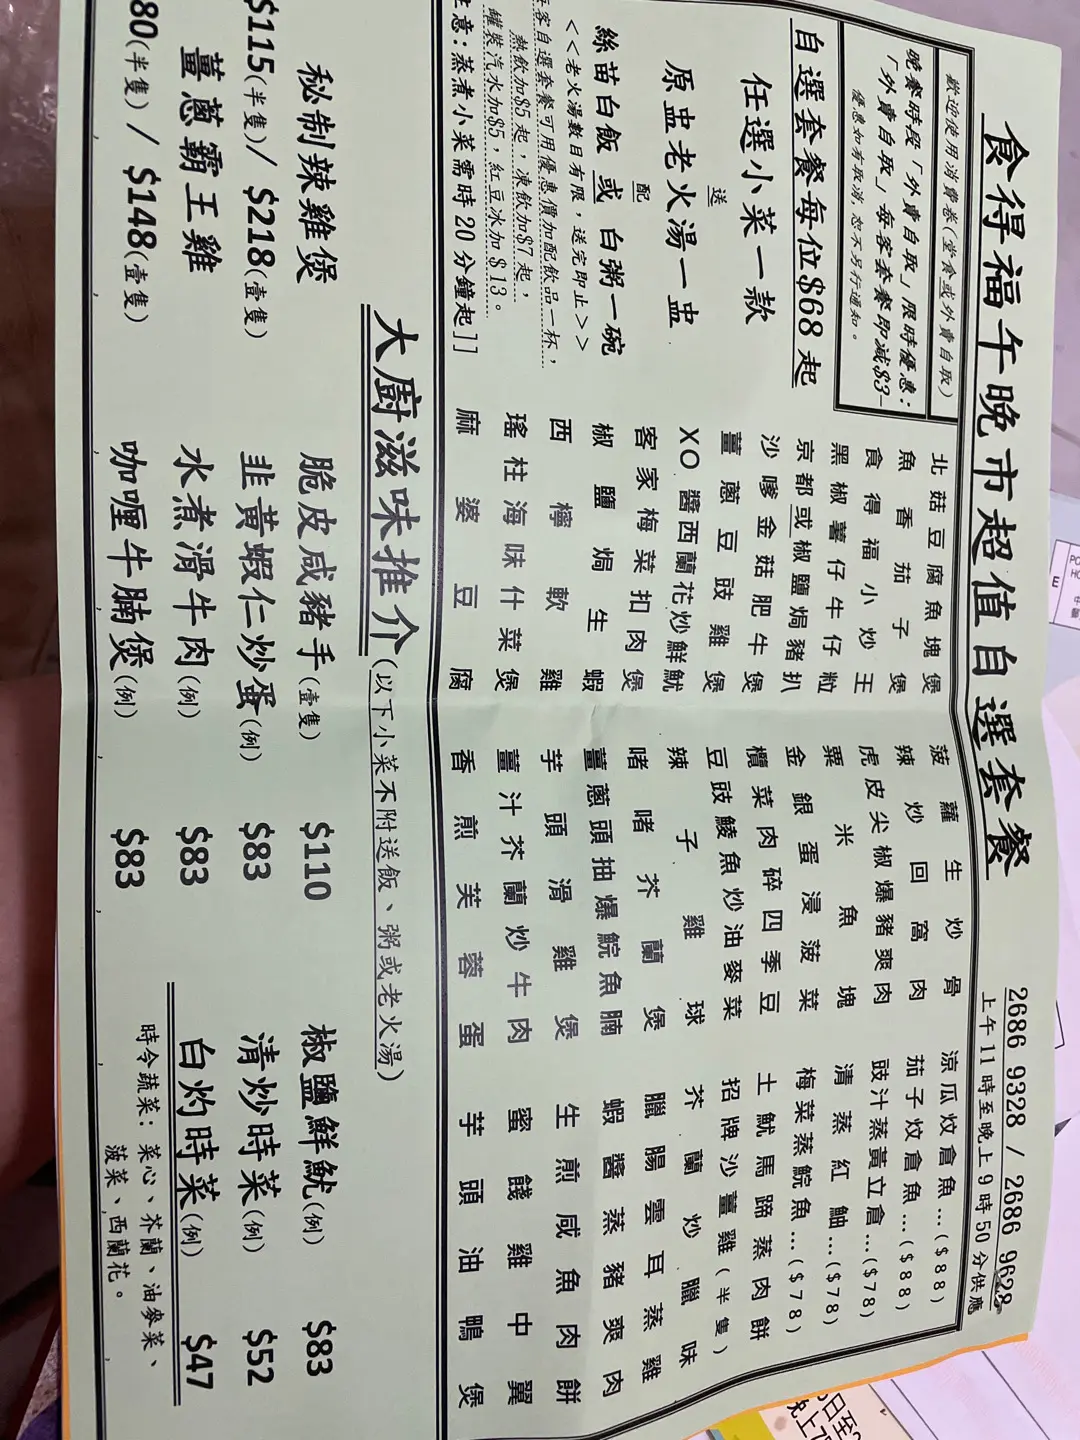 食得福午晚市超值自選套餐
2686 9328 / 2686 9628
上午11時至晚上9時50分供應
歡迎使用消費券(堂食或外賣自取)
晚餐時段「外賣自取」限時優惠：
「外賣自取」每客套餐即減$3-
優惠如有取消，恕不另行通知。
自選套餐每位$68起
任選小菜一款
送
原盅老火湯一盅
配
絲苗白飯 或 白粥一碗
<<老火湯數目有限，送完即止>>
客自選套餐可用優惠價加配飲品一杯，
熱飲加$5起，凍飲加$7起，
罐裝汽水加$5，紅豆冰加$13。
意：蒸煮小菜需時20分鐘起]]
北菇豆腐魚塊煲
魚香茄子煲
食得福小炒王
黑椒薯仔牛仔粒
京都或椒鹽焗豬扒
沙嗲金菇肥牛煲
薑蔥豆豉雞煲
XO醬西蘭花炒鮮魷
客家梅菜扣肉煲
椒鹽焗生蝦
西檸軟雞
瑤柱海味什菜煲
麻婆豆腐
菠蘿生炒骨
辣炒回窩肉
虎皮尖椒爆豬爽肉
粟米魚塊
金銀蛋浸菠菜
欖菜肉碎四季豆
豆豉鯪魚炒油麥菜
辣子雞球
啫啫芥蘭煲
薑蔥頭抽爆鯇魚腩
芋頭滑雞煲
薑汁芥蘭炒牛肉
香煎芙蓉蛋
涼瓜炆倉魚...($88)
茄子炆倉魚...($88)
豉汁蒸黃立倉...($78)
清蒸紅鮋...($78)
梅菜蒸鯇魚...($78)
土魷馬蹄蒸肉餅
招牌沙薑雞(半隻)
芥蘭炒臘味
臘腸雲耳蒸雞
蝦醬蒸豬爽肉
生煎咸魚肉餅
蜜餞雞中翼
芋頭油鴨煲
大廚滋味推介(以下小菜不附送飯、粥或老火湯)
秘制辣雞煲
$115(半隻)/ $218(壹隻)
薑蔥霸王雞
80(半隻) / $148(壹隻)
脆皮咸豬手(壹隻) $110
韭黃蝦仁炒蛋(例) $83
水煮滑牛肉(例) $83
咖喱牛腩煲(例) $83
椒鹽鮮魷(例) $83
清炒時菜(例) $52
白灼時菜(例) $47
時令蔬菜：菜心、芥蘭、油麥菜、
菠菜、西蘭花。
E